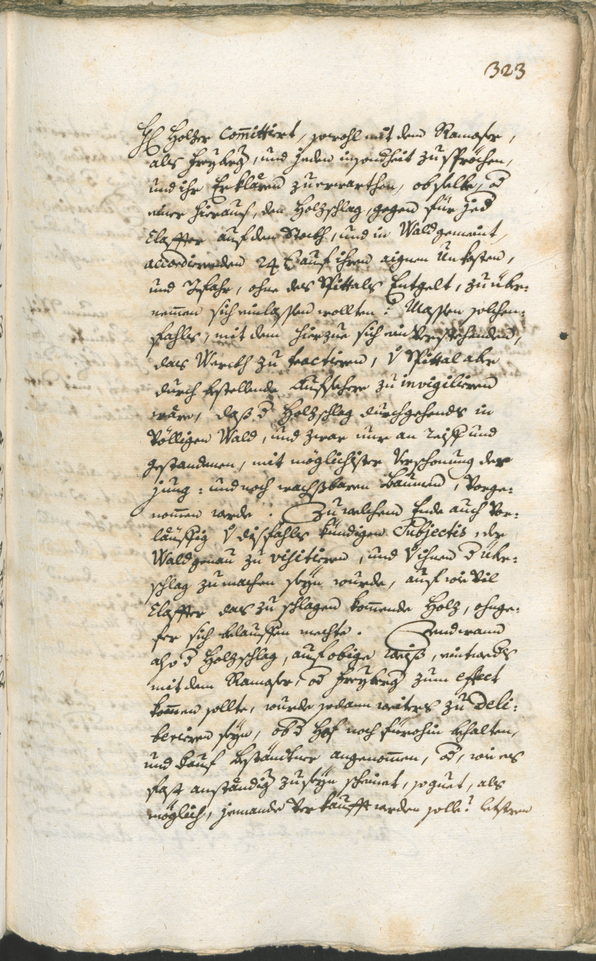 323
H Holzer Committiert, sowohl mit dem Ramoser,
als Freyberg, und jeden insonderheit zu sprechen,
und ihr Erklären zuerwarthen, ob selbe, od
einer hierauf, den Holzschlag, gegen für jed
Claffter auf dem Stockh, und in Wald gemeint,
accordierenden 24 auf ihren aignen Unkosten,
und Gfahr, ohne des Spittals Entgelt, zu über-
nemmen sich einlassen wollten? Massen solchen-
fahls, mit dem hierzue sich einverstehenden,
das Werckh zu tractieren, Spittal aber
durch bestellende Aufseher zu invigilieren
wäre, daß d Holzschlag durchgehends in
völligen Wald, und zwar nur an und
gestandnen, mit möglichster Verschonung der
jung- und noch wachsbaren Bäumen, vorge-
nommen werde. Zu welchem Ende auch vor-
läuffig disfahls kündigen Subjectis, der
Wald genau zu visitieren, und ihnen d über-
schlag zumachen seyn wurde, auf wie vil
Claffter das zu schlagen kommende Holz, ohnge-
fer sich belauffen mechte. Und wann
also d Holzschlag, auf obige weiß, eintweders
mit dem Ramoser, od Freyberg zum effect
kommen sollte, wurde sodann weiters zu deli-
berieren seyn, ob d Hof noch fürohin behalten,
und hierauf beständtner angenommen, od, wie es
fast anständig zu seyn scheinet, so guet, als
möglich, jemande verkaufft werden solle? letstern